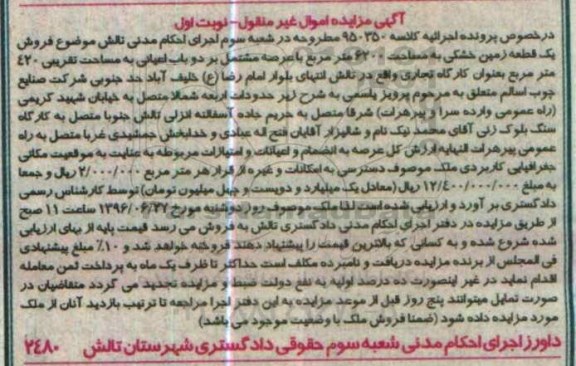 آگهی مزایده اموال غیر منقول - نوبت اول
درخصوص پرونده اجرائیه کلاسه ۹۵۰۳۵۰ مطروحه در شعبه سوم اجرای احکام مدنی تالش موضوع فروش
یک قطعه زمین خشکی به مساحت ۶۲۰۰ متر مربع با عرصه مشتمل بر دو باب اعیانی به مساحت تقریبی ۴۲۰
متر مربع بعنوان کارگاه تجاری واقع در تالش انتهای بلوار امام رضا (ع) خلیف آباد حد جنوبی شرکت صنایع
چوب اسالم متعلق به مرحوم پرویز یاسمی به شرح زیر حدودات اربعه شمالا متصل به خیابان شهید کریمی
(راه عمومی وارده سرا و پیرهرات) شرقا متصل به حریم جاده آسفالته انزلی تالش جنوبا متصل به کارگاه
سنگ بلوک زنی آقای محمد نیک نام و شالیزار آقایان فتح اله عبادی و خدابخش جمشیدی غربا متصل به راه
عمومی پیرهرات النهایه ارزش کل عرصه به انضمام و اعیانات و امتیازات مربوطه به عنایت به موقعیت مکانی
جغرافیایی کاربردی ملک موصوف دسترسی به امکانات و غیره از قرار هر متر مربع ۲/۰۰۰/۰۰۰ ریال و جمعا
به مبلغ ۱۲/۴۰۰/۰۰۰/۰۰۰ ریال (معادل یک میلیارد و دویست و چهل میلیون تومان) توسط کارشناس رسمی
دادگستری بر آورد و ارزیابی شده است لذا ملک موصوف روز دوشنبه مورخ ۱۳۹۶/۰۶/۲۷ ساعت ۱۱ صبح
از طریق مزایده در دفتر اجرای احکام مدنی دادگستری تالش به فروش می رسد قیمت پایه از بهای ارزیابی
شده شروع شده و به کسانی که بالاترین قیمت را پیشنهاد دهند فروخته خواهد شد و ۱۰٪ مبلغ پیشنهادی
فی المجلس از برنده مزایده دریافت و نامبرده مکلف است حداکثر تا ظرف یک ماه به پرداخت ثمن معامله
اقدام نماید در غیر اینصورت ده درصد اولیه به نفع دولت ضبط و مزایده تجدید می گردد متقاضیان در
صورت تمایل میتوانند پنج روز قبل از موعد مزایده به این دفتر اجرا مراجعه تا ترتیب بازدید آنان از ملک
مورد مزایده داده شود (ضمنا فروش ملک با وضعیت موجود می باشد)
دادورز اجرای احکام مدنی شعبه سوم حقوقی دادگستری شهرستان تالش ۲۴۸۰